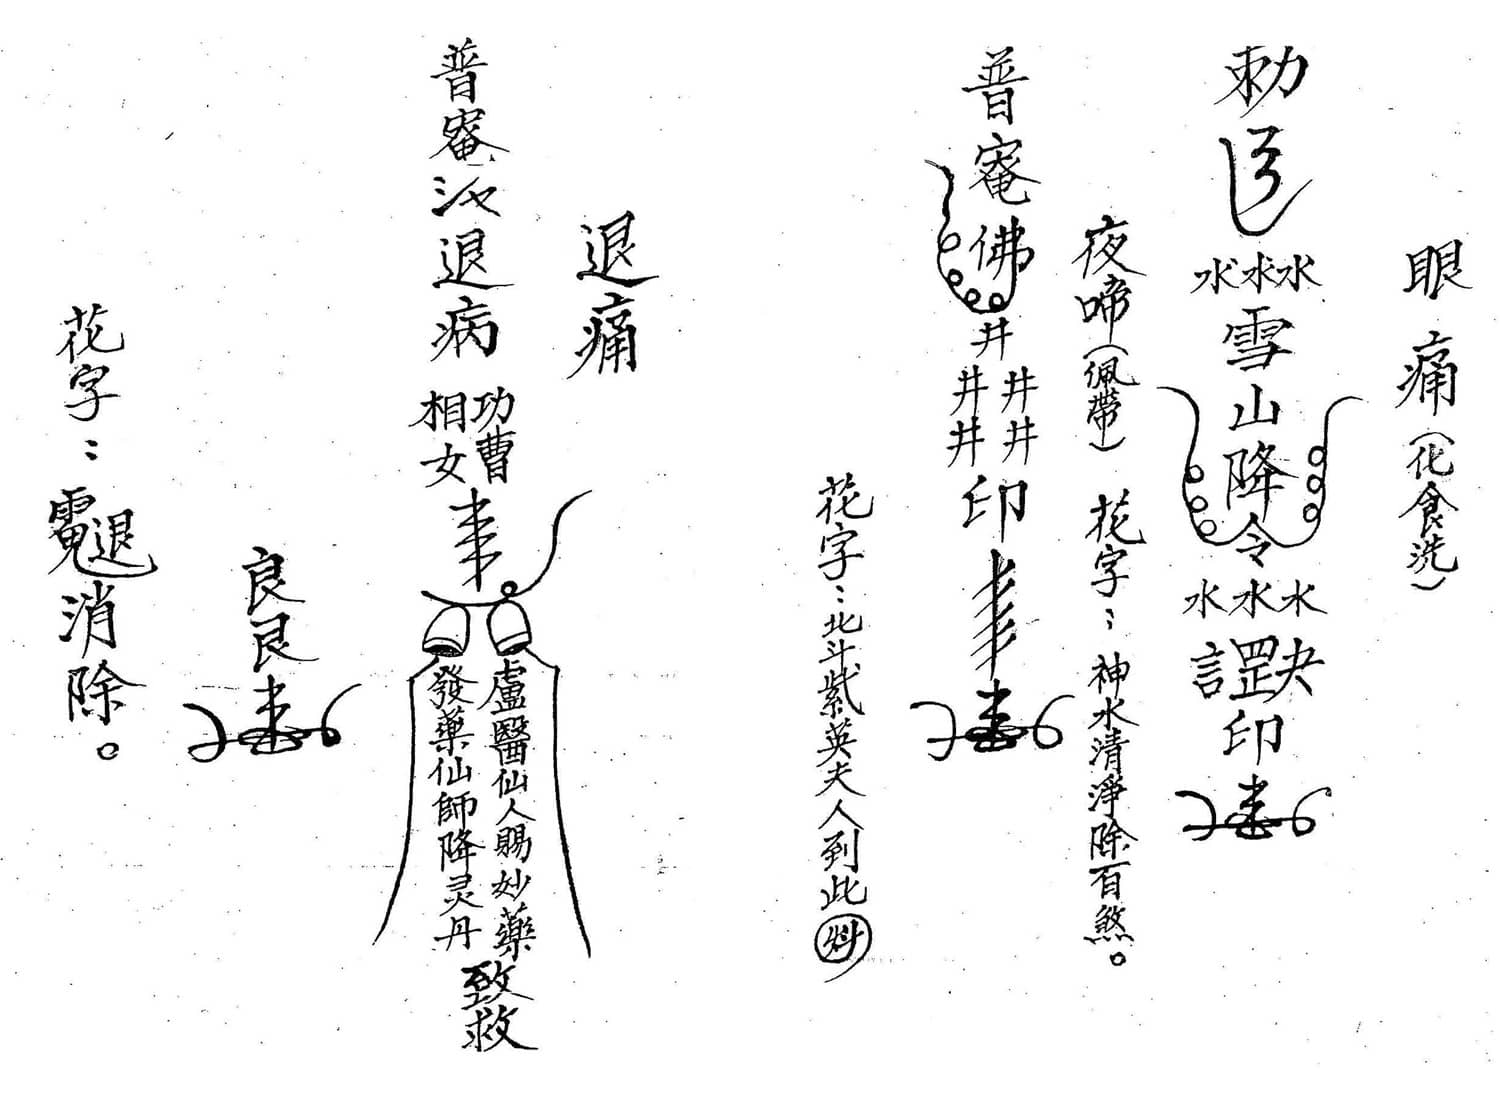 眼痛(化食洗)
勅
水水水
雪山降令
水水水
印
花字：神水清淨除百煞。
夜啼(佩帶)
普
佛
井
井井
井井
印
花字：北斗紫英夫人到此
退痛
普
退病
功曹
相女
盧醫仙人賜妙藥
發藥仙師降灵丹
致救
良艮
花字：
退消除。